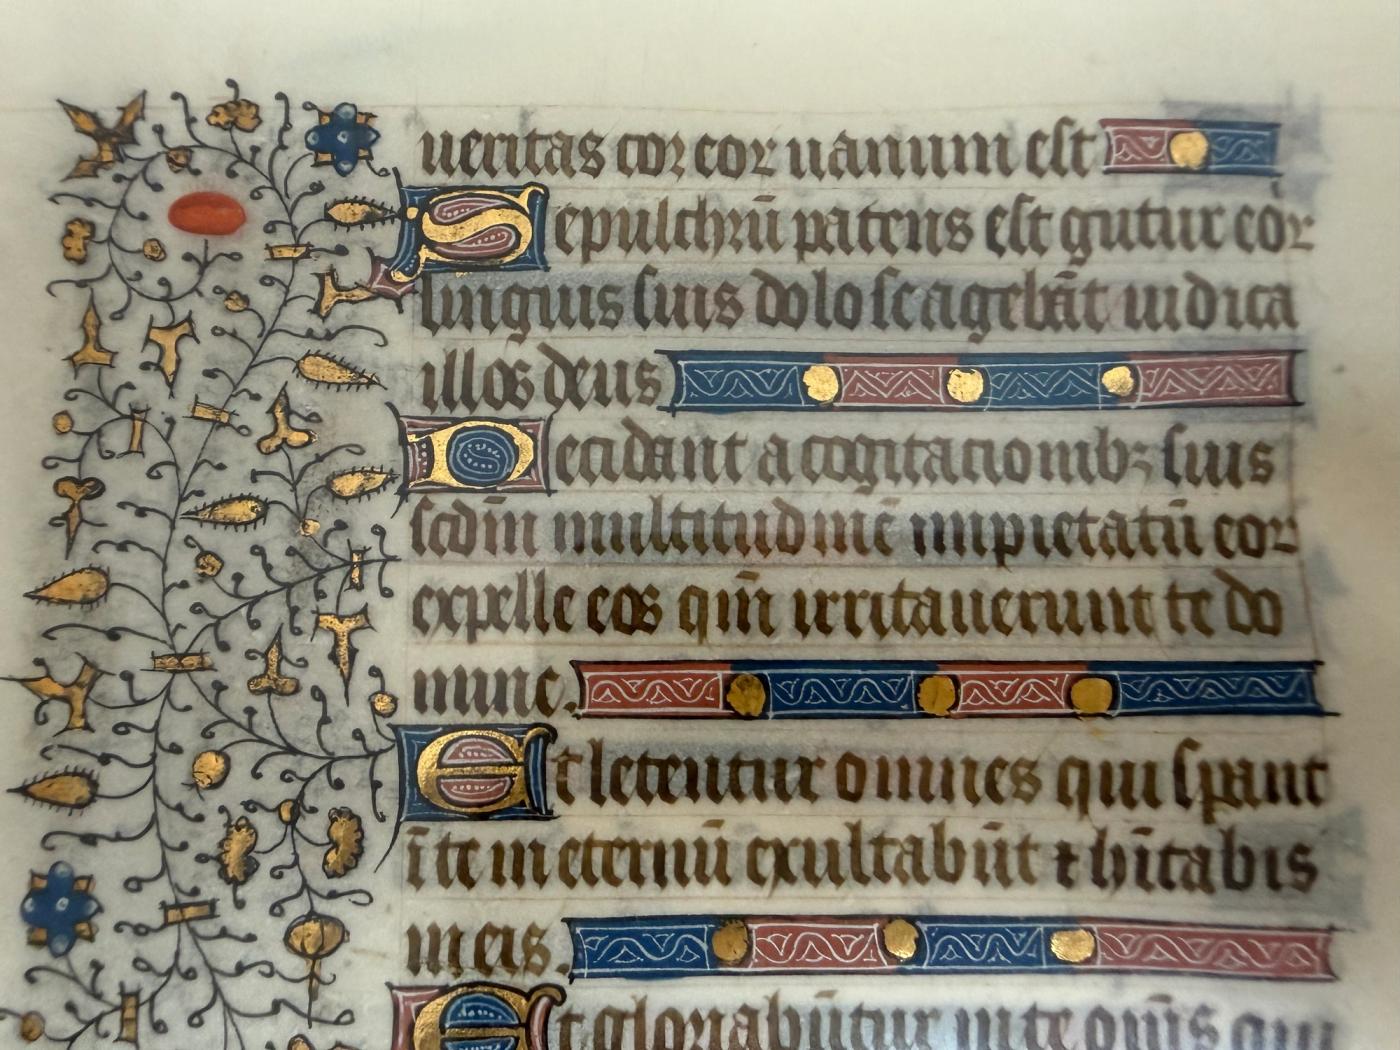 ueritas cor cor uanum est
Sepulchrū patens est gutur eor
linguis suis dolose agebāt iudica
illos deus
Decidant a cogitacionibꝫ suis
scdm̄ multitudinē impietatū eor
expelle eos qm̄ irritauerunt te do
mine.
Et letentur omnes qui sperant
ī te in eternū exultabūt ⁊ hītabis
in eis.
Et gloriabūtur in te om̄s qui